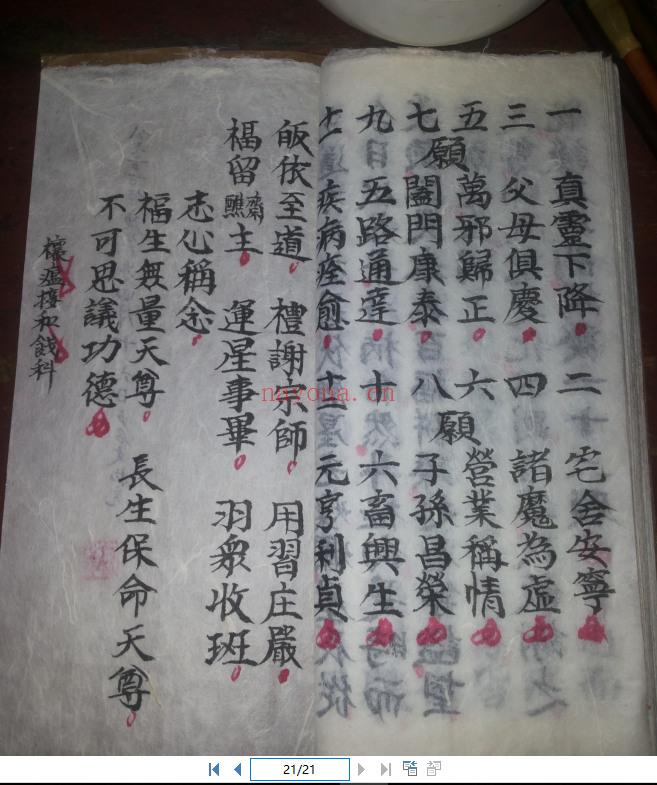 一 真靈下降 二 宅舍安寧
三 父母俱慶 四 諸魔為虛
五 萬邪歸正 六 營業稱情
願 願
七 闔門康泰 八 子孫昌榮
九 五路通達 十 六畜興生
十一 疾病痊愈 十二 元亨利貞
皈依至道 禮謝宗師 用習庄嚴
福留齋醮主 運星事畢 羽眾收班
志心稱念
福生無量天尊 長生保命天尊
不可思議功德
禳瘟 和餞科
nayona.cn
21/21